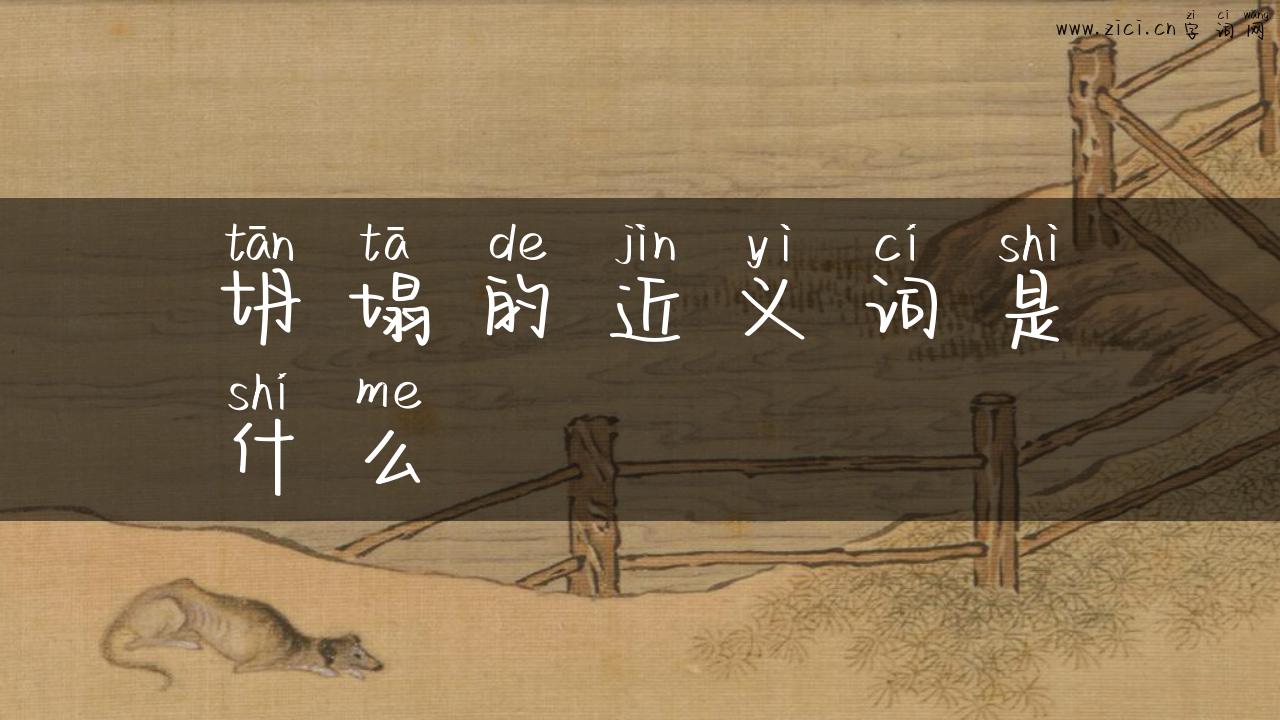 zi ci wang
www.zici.cn 字词网
tān tā de jìn yì cí shì
坍塌的近义词是
shí me
什么